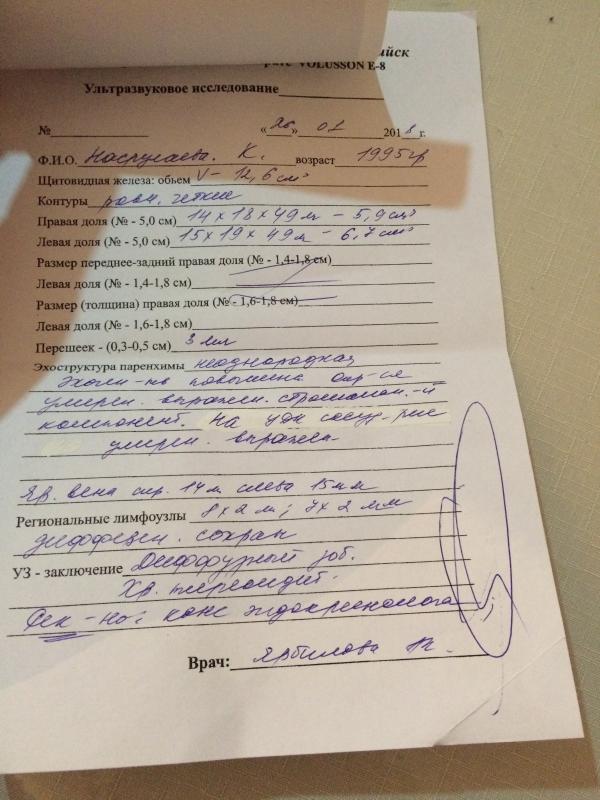 йск
VOLUSSON E-8
Ультразвуковое исследование
№ «26» 01 2018 г.
Ф.И.О. К. возраст 1995 гр
Щитовидная железа: обьем V- 12,6 см³
Контуры ровн. четкие
Правая доля (№ - 5,0 см) 14 х 18 х 49 м - 5,9 см³
Левая доля (№ - 5,0 см) 15 х 19 х 49 м - 6,7 см³
Размер переднее-задний правая доля (№ - 1,4-1,8 см)
Левая доля (№ - 1,4-1,8 см)
Размер (толщина) правая доля (№ - 1,6-1,8 см)
Левая доля (№ - 1,6-1,8 см)
Перешеек - (0,3-0,5 см) 3 мм
Эхоструктура паренхимы неоднородная
Эхоген-ть повышена опр-ся
умерен. выражен. стромальн.-й
компонент. На УДК сосуд. рис
умерен. выражен
Яр. вена спр. 14 м слева 15 мм
Региональные лимфоузлы 8 х 2 м; 7 х 2 мм
дифферен. сохран
УЗ - заключение Диффузный зоб.
Хр. тиреоидит.
Рек-но: конс эндокринолога
Врач: